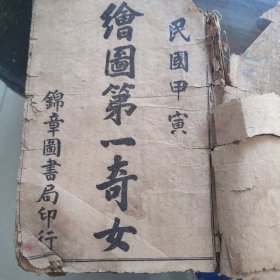 民國甲寅
繪圖第一奇女
錦章圖書局印行